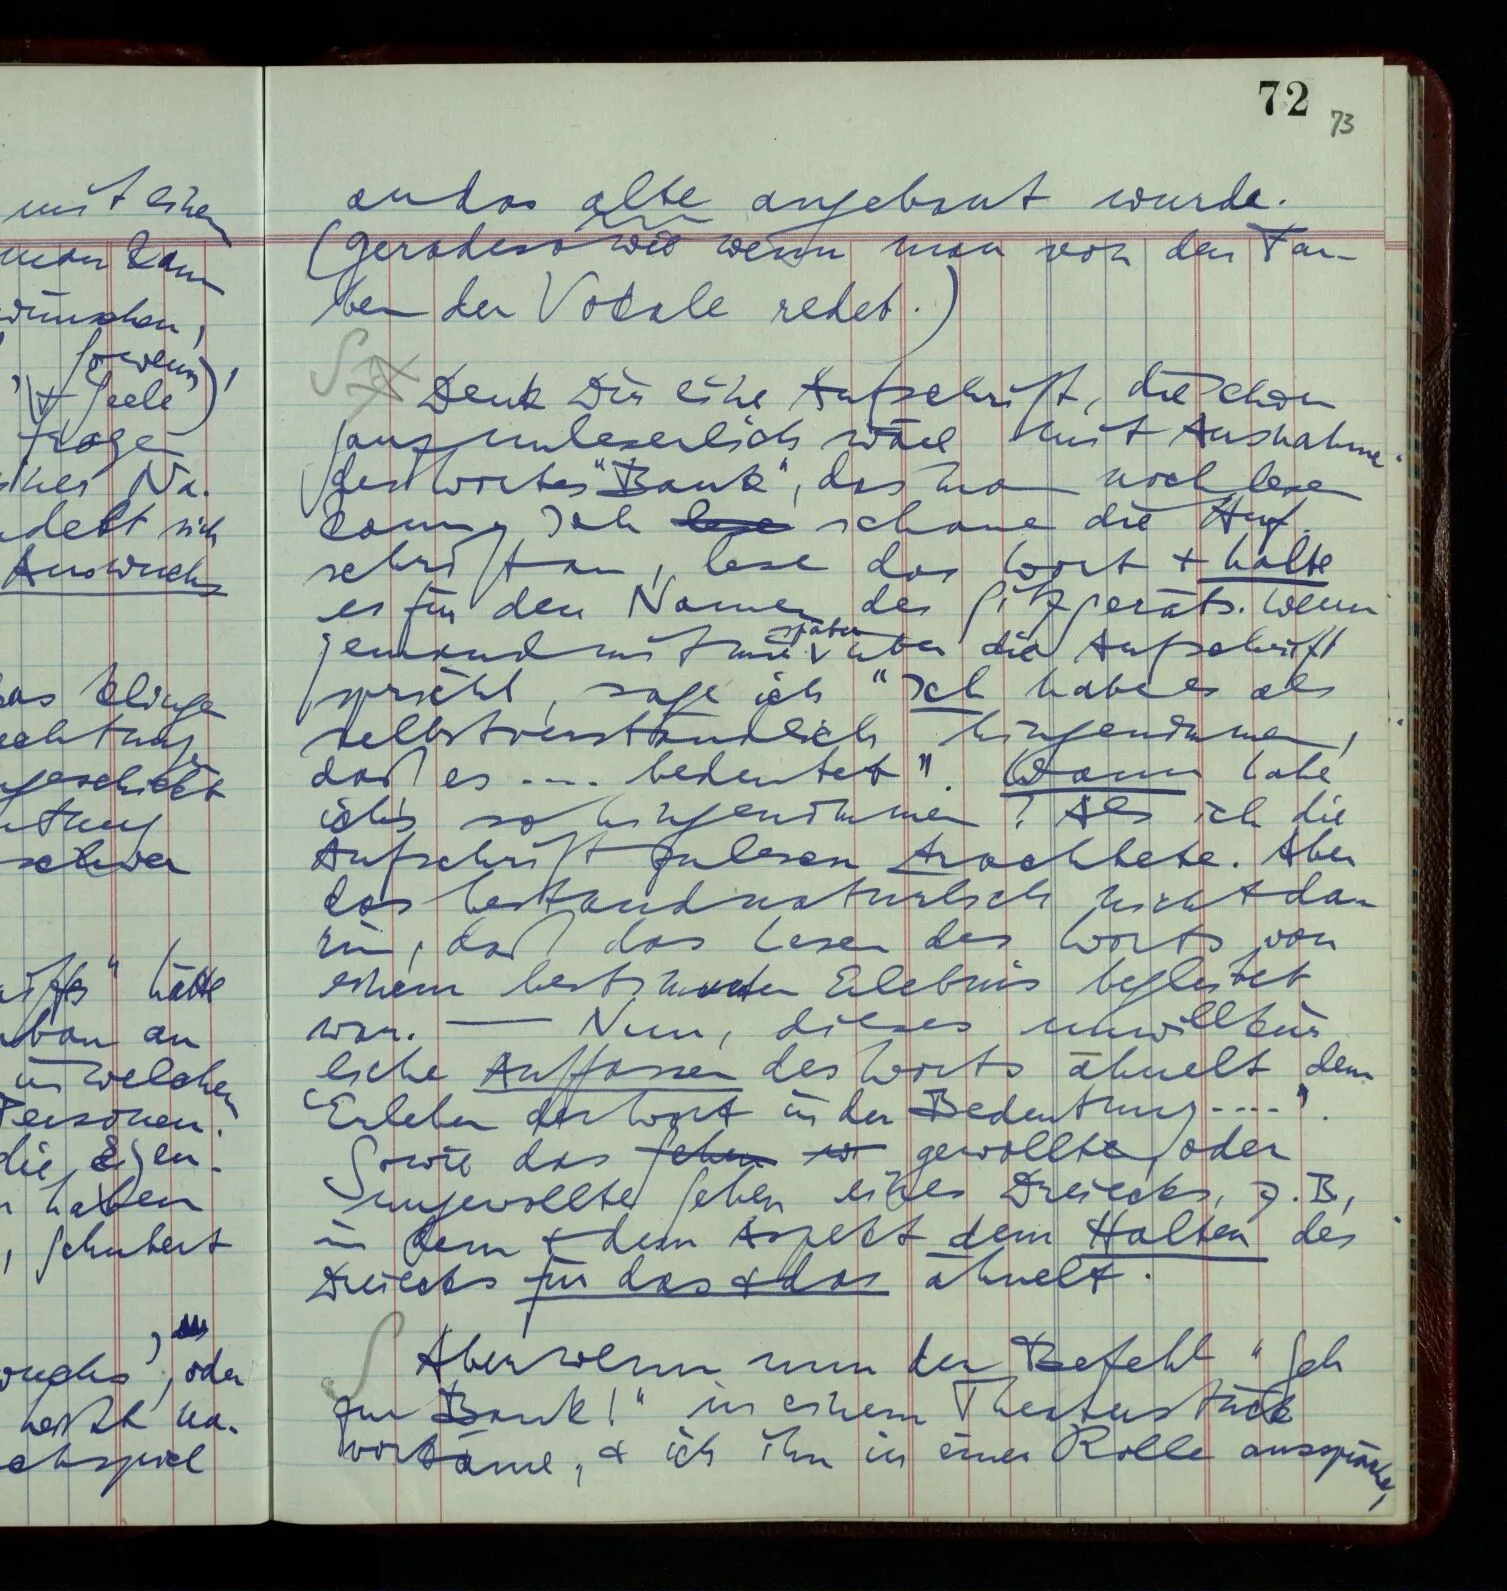 mit einem
man kann
wünschen,
so wenn
Seele)
Frage
Na-
delt sich
Auswuchs
das Klinge
geschickt
schwer
hätte
an
in welchen
Personen.
die Eigen-
haben
, Schubert
, oder
heißt na-
72
73
an das alte angebaut wurde.
(Geradeso wie wenn man von den Far-
ben der Vokale redet.)
Denk Dir eine Aufschrift, die schon
ganz unleserlich wäre mit Ausnahme
des Wortes "Bank", das man noch lesen
kann. Ich lese schaue die Auf-
schrift an, lese das Wort + halte
es für den Namen des Sitzgeräts. Wenn
später
jemand mit mir über die Aufschrift
spricht, sage ich "Ich habe es als
selbstverständlich hingenommen,
daß es .... bedeutet". Wann habe
ich's so hingenommen? Als ich die
Aufschrift zu lesen trachtete. Aber
das bestand natürlich nicht da-
rin, daß das Lesen des Worts von
einem bestimmten Erlebnis begleitet
war. — Nun, dieses unwillkür
liche Auffassen des Worts ähnelt dem
'Erleben des Wort in der Bedeutung ....'.
Sowie das sehen gewollte oder
ungewollte Sehen eines Dreiecks, z.B.,
in dem + dem Aspekt dem Halten des
Dreiecks für das + das ähnelt.
Aber wenn nun der Befehl "Geh
zur Bank!" in einem Theaterstück
vorkäme, + ich ihn in einer Rolle ausspräche,